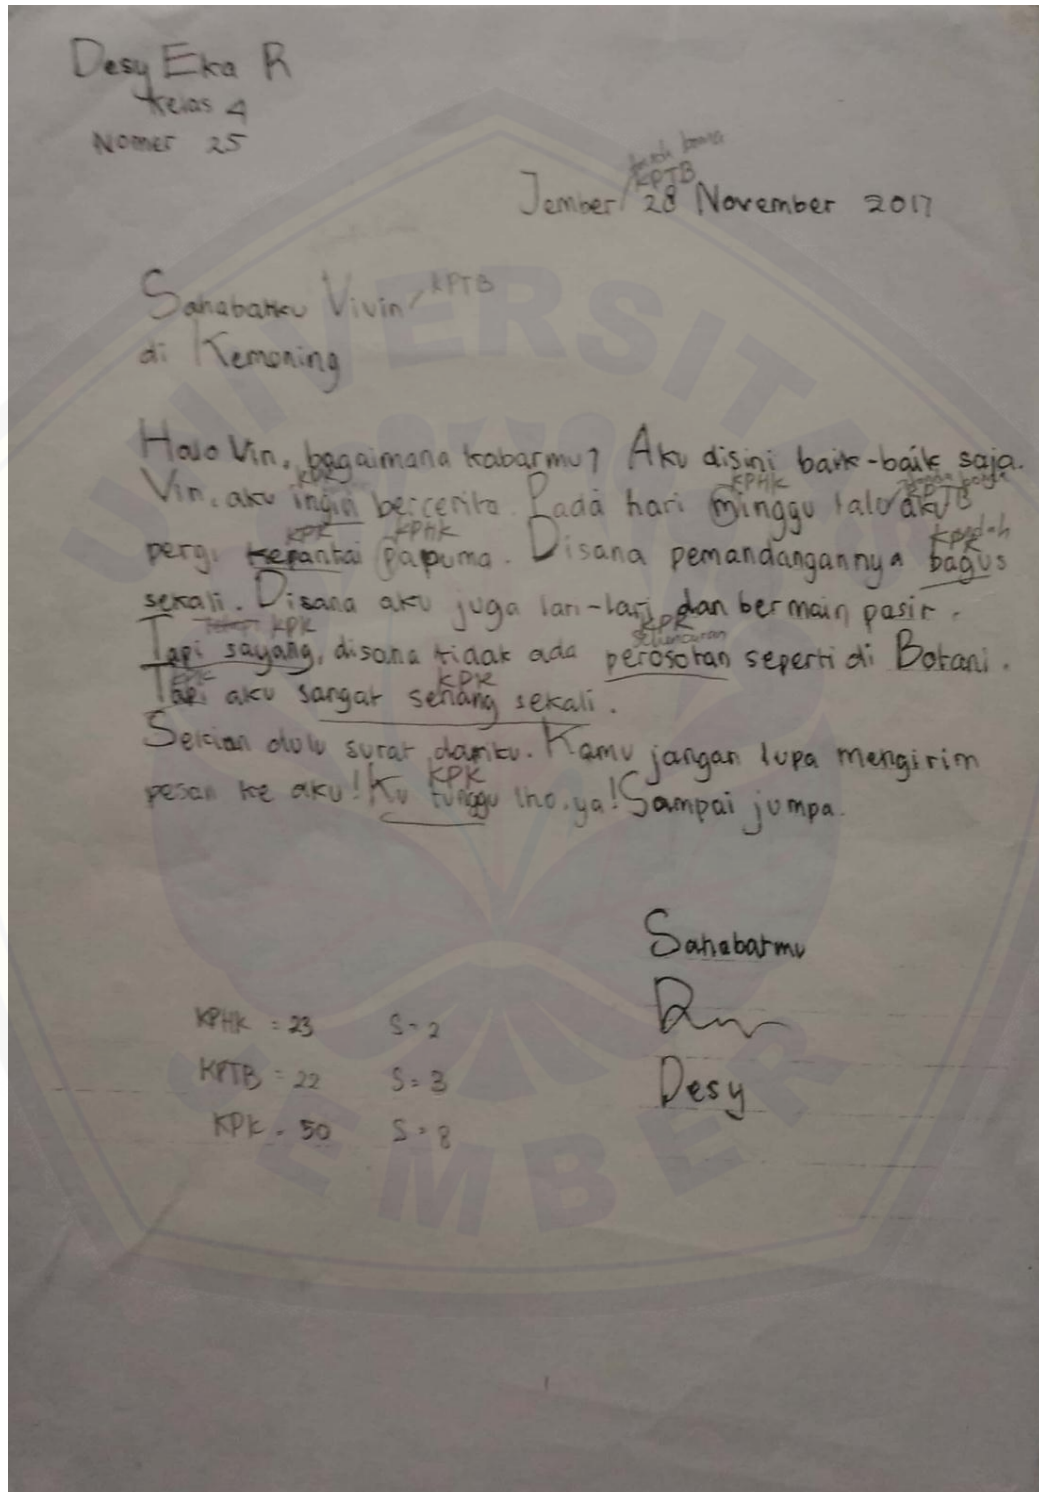 Desy Eka R
Kelas 4
Nomer 25
KPTB
Jember 28 November 2017
KPTB
Sahabatku Vivin
di Kemoning
Halo Vin, bagaimana kabarmu? Aku disini baik-baik saja.
KPK KPHK KPTB
Vin, aku ingin bercerita. Pada hari minggu lalu aku
KPK KPHK KPK
pergi kepantai papuma. Disana pemandangannya bagus
sekali. Disana aku juga lari-lari dan bermain pasir.
KPK KPK
Tapi sayang, disana tidak ada perosotan seperti di Botani.
KPK KPK
Tapi aku sangat senang sekali.
Sekian dulu surat dariku. Kamu jangan lupa mengirim
KPK
pesan ke aku! Ku tunggu lho, ya! Sampai jumpa.
Sahabatmu
Desy
KPHK = 23 S = 2
KPTB = 22 S = 3
KPK = 50 S = 8
UNIVERSITAS
JEMBER